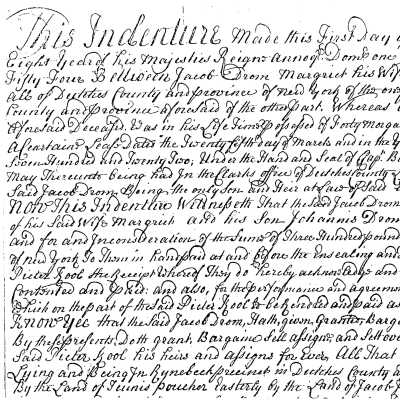 This Indenture Made this First Day
Eight Year of his Majesties Reign Annoq Dom one
Fifty Four Between Jacob Drom Margriet his Wif
All of Dutches County and province of new York of the one
County and province aforesaid of the other part. Whereas
Aforesaid Deceasd. Was in his Life Time posesed of Forty morga
A Ceartain Leas Dated the Twenty Fifth day of March and in the Y
Seven Hundred and Twenty Two; Under the Hand and Seal of Cap.
May Thereunto being had In the Clarks office of Dutches County
Said Jacob Drom Being the only Son and Heir at Law of Said
NOW This Indenture Witnesseth That the Said Jacob Drom
of his Said Wife Margriet and his Son Johannis Drom
and for and In consideration of the Sume of Three Hundred pound
of new York To Them in Hand paid at and before the Ensealing and
Pieter Kool the Receipt Whereof They do hereby acknowledge and
Contented and Paid: and also, for the performance and agreemen
Which on the part of the said Pieter Kool to be Kended and paid as
KNOW Yee that the Said Jacob Drom, Hath, given, Granted, Barg
By these presents, Doth grant, Bargain Sell assign, and Sett over
Said Pieter Kool his heirs and asigns for Ever, All That
Lying and Being In Rynebeck precinct in Dutches County
By the Land of Teunis poucher Easterly by the Land of Jacob